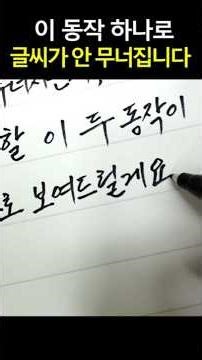 이 동작 하나로
글씨가 안 무너집니다
할 이 두 동작이
로 보여드릴게요